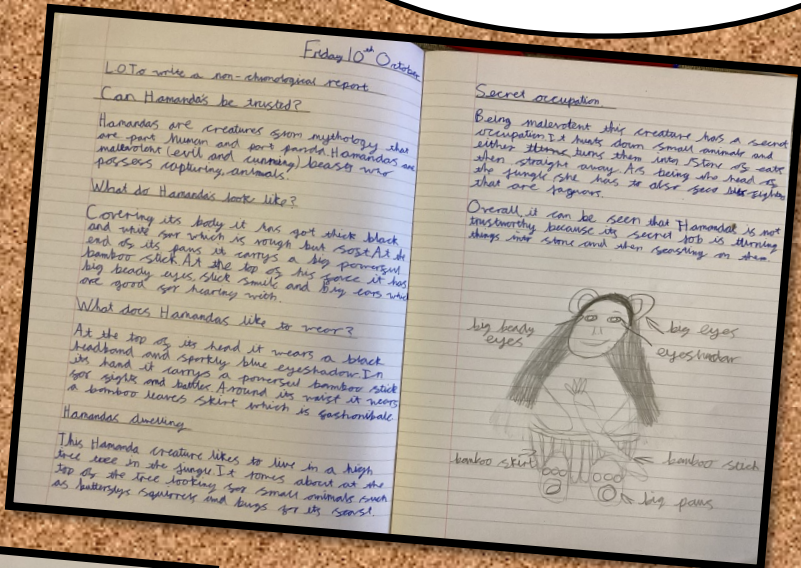 Friday 10th October
LO To write a non-chronological report
Can Hamanda's be trusted?
Hamandas are creatures from mythology that
are part human and part panda. Hamandas are
malevolent (evil and cunning) beasts who
possess capturing animals.
What do Hamanda's look like?
Covering its body it has got thick black
and white fur which is rough but soft. At the
end of its paws it carrys a big powerful
bamboo stick. At the top of his face it has
big beady eyes, slick smile and Big ears which
are good for hearing with.
What does Hamandas like to wear?
At the top of its head it wears a black
headband and sparkly blue eyeshadow. In
its hand it carrys a powerful bamboo stick
for fights and battles. Around its waist it wears
a bamboo leaves skirt which is fashonibale
Hamandas dwelling
This Hamanda creature likes to live in a high
tree in the jungle. It comes about at the
top of the tree looking for small animals such
as butterflys squirrels and bugs for its feast.
Secret occupation
Being malevolent this creature has a secret
occupation. It hunts down small animals and
either turns them into stone or eats
them straight away. As being the head of
the jungle she has to also
that are jaguars.
Overall it can be seen that Hamanda is not
trustworthy because its secret job is turning
things into stone and then feasting on them.
big beady
eyes
big eyes
eyeshadow
bamboo skirt
bamboo
big paws